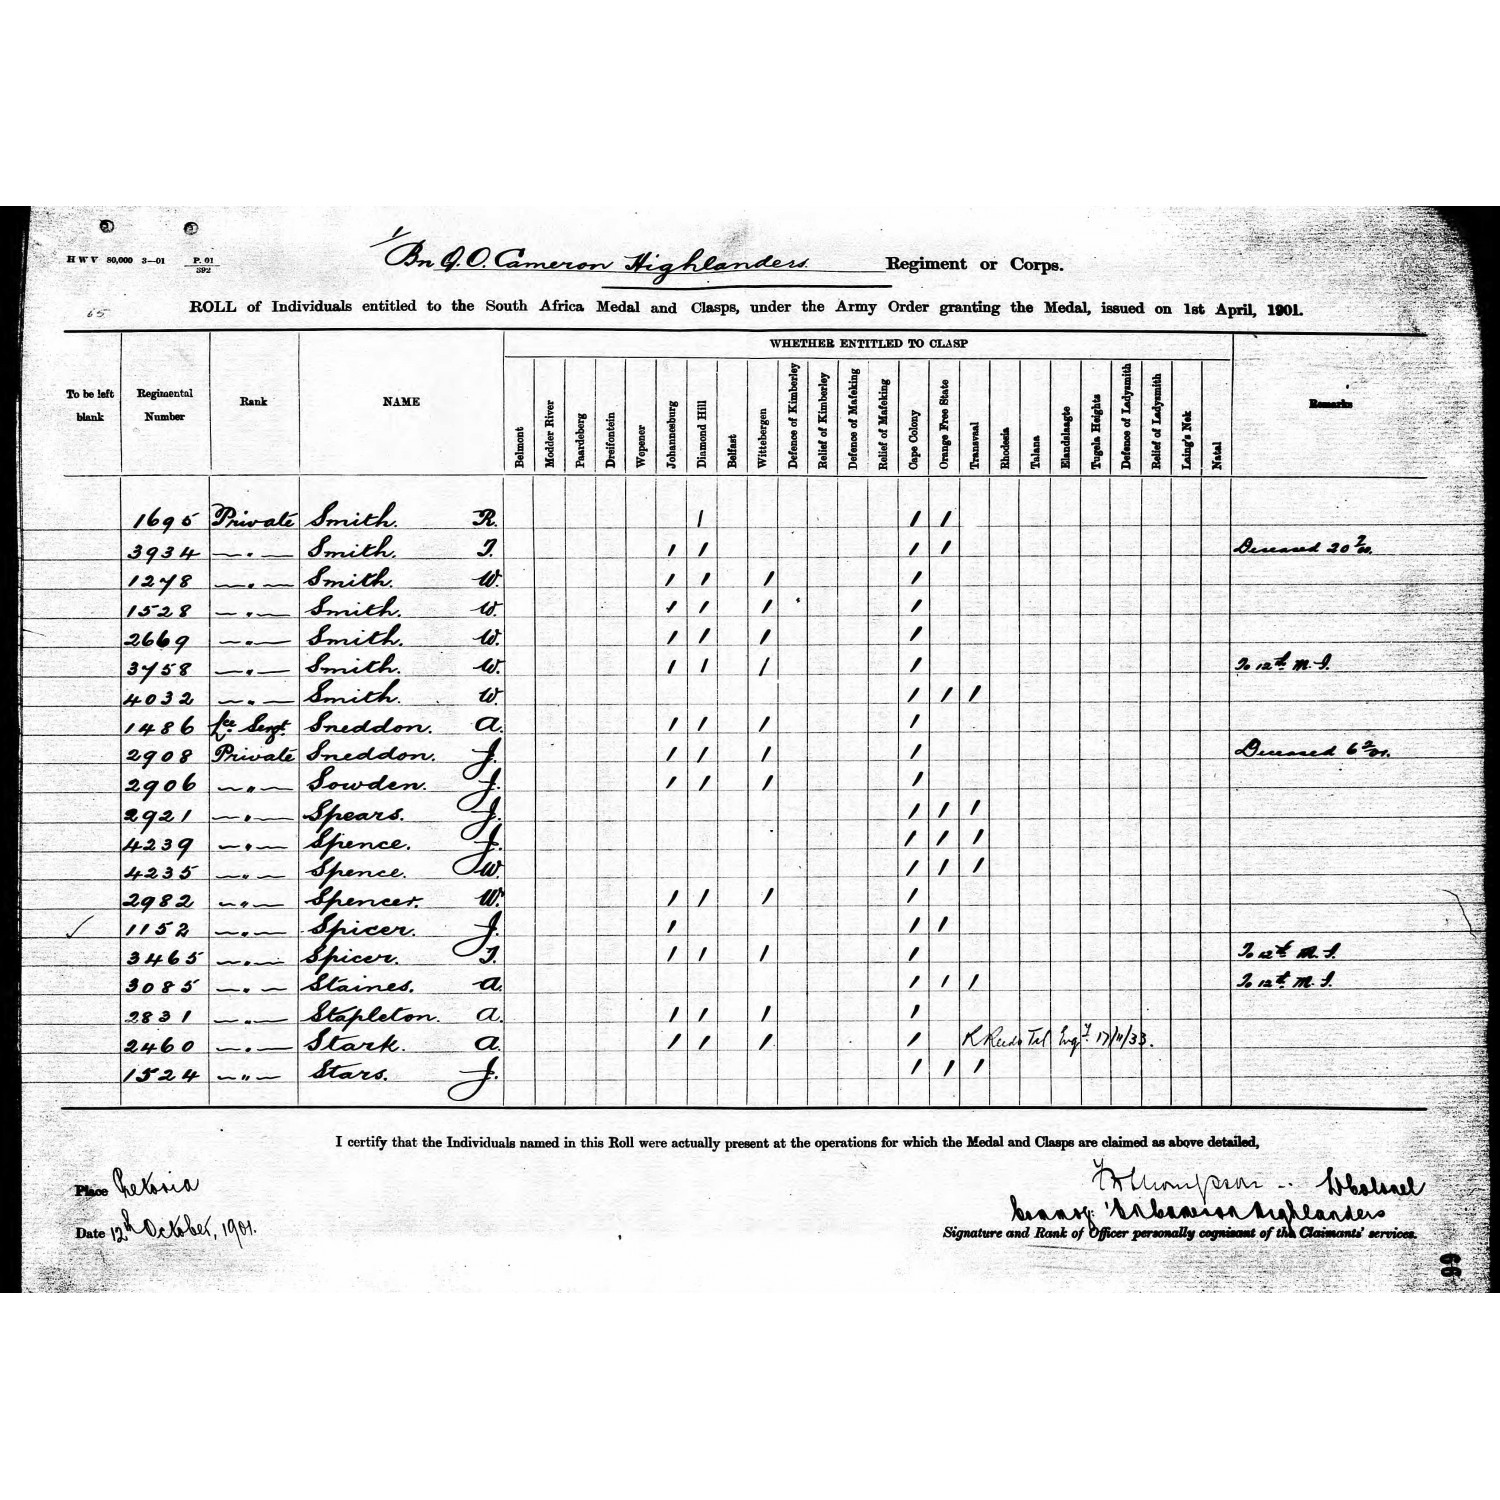 H W V 80,000 3—01 P. 01 / 392
1/ Bn Q.O. Cameron Highlanders. Regiment or Corps.
65
ROLL of Individuals entitled to the South Africa Medal and Clasps, under the Army Order granting the Medal, issued on 1st April, 1901.
WHETHER ENTITLED TO CLASP
To be left blank Regimental Number Rank NAME Belmont Modder River Paardeberg Dreifontein Wepener Johannesburg Diamond Hill Belfast Wittebergen Defence of Kimberley Relief of Kimberley Defence of Mafeking Relief of Mafeking Cape Colony Orange Free State Transvaal Rhodesia Talana Elandslaagte Tugela Heights Defence of Ladysmith Relief of Ladysmith Laing's Nek Natal Remarks
1695 Private Smith. R. / / /
3934 —"— Smith. T. / / / / Deceased 20 7/00.
1278 —"— Smith. W. / / / /
1528 —"— Smith. W. / / / /
2669 —"— Smith. W. / / / /
3758 —"— Smith. W. / / / / To 12th M.I.
4032 —"— Smith. W. / / /
1486 Lce Sergt. Sneddon. A. / / / /
2908 Private Sneddon. J. / / / / Deceased 6 2/01.
2906 —"— Sowden. J. / / / /
2921 —"— Spears. J. / / /
4239 —"— Spence. J. / / /
4235 —"— Spence. W. / / /
2982 —"— Spencer. W. / / / /
✓ 1152 —"— Spicer. J. / / /
3465 —"— Spicer. T. / / / / To 12th M.I.
3085 —"— Staines. A. / / / To 12th M.I.
2831 —"— Stapleton. A. / / / /
2460 —"— Stark. A. / / / / 17/11/33.
1524 —"— Stars. J. / / /
I certify that the Individuals named in this Roll were actually present at the operations for which the Medal and Clasps are claimed as above detailed,
Place Pretoria
Thompson Lt Colonel
Date 12th October, 1901.
Commdg. 1/Bn Cameron Highlanders
Signature and Rank of Officer personally cognisant of the Claimants' services.
66